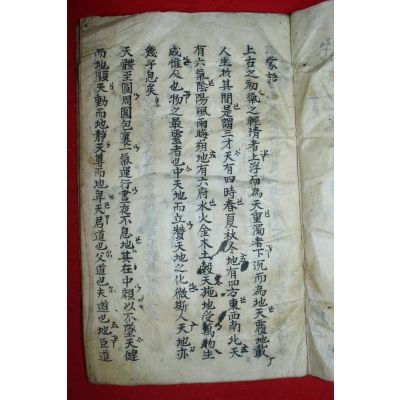 家語
上古之初氣之輕清者上浮而為天重濁者下沉而為地天覆地載
人生於其間是謂三才天有四時春夏秋冬地有四方東西南北天
有六氣陰陽風雨晦朔地有六府水火金木土穀天施地受萬物生
成惟人也物之最靈者也中天地而立贊天地之化微斯人天地亦
幾乎息矣
天體至圓周圓包裹一氣運行晝夜不息地其在中賴以不墜天健
而地順天動而地靜天尊而地卑天君道也父道也夫道也地臣道